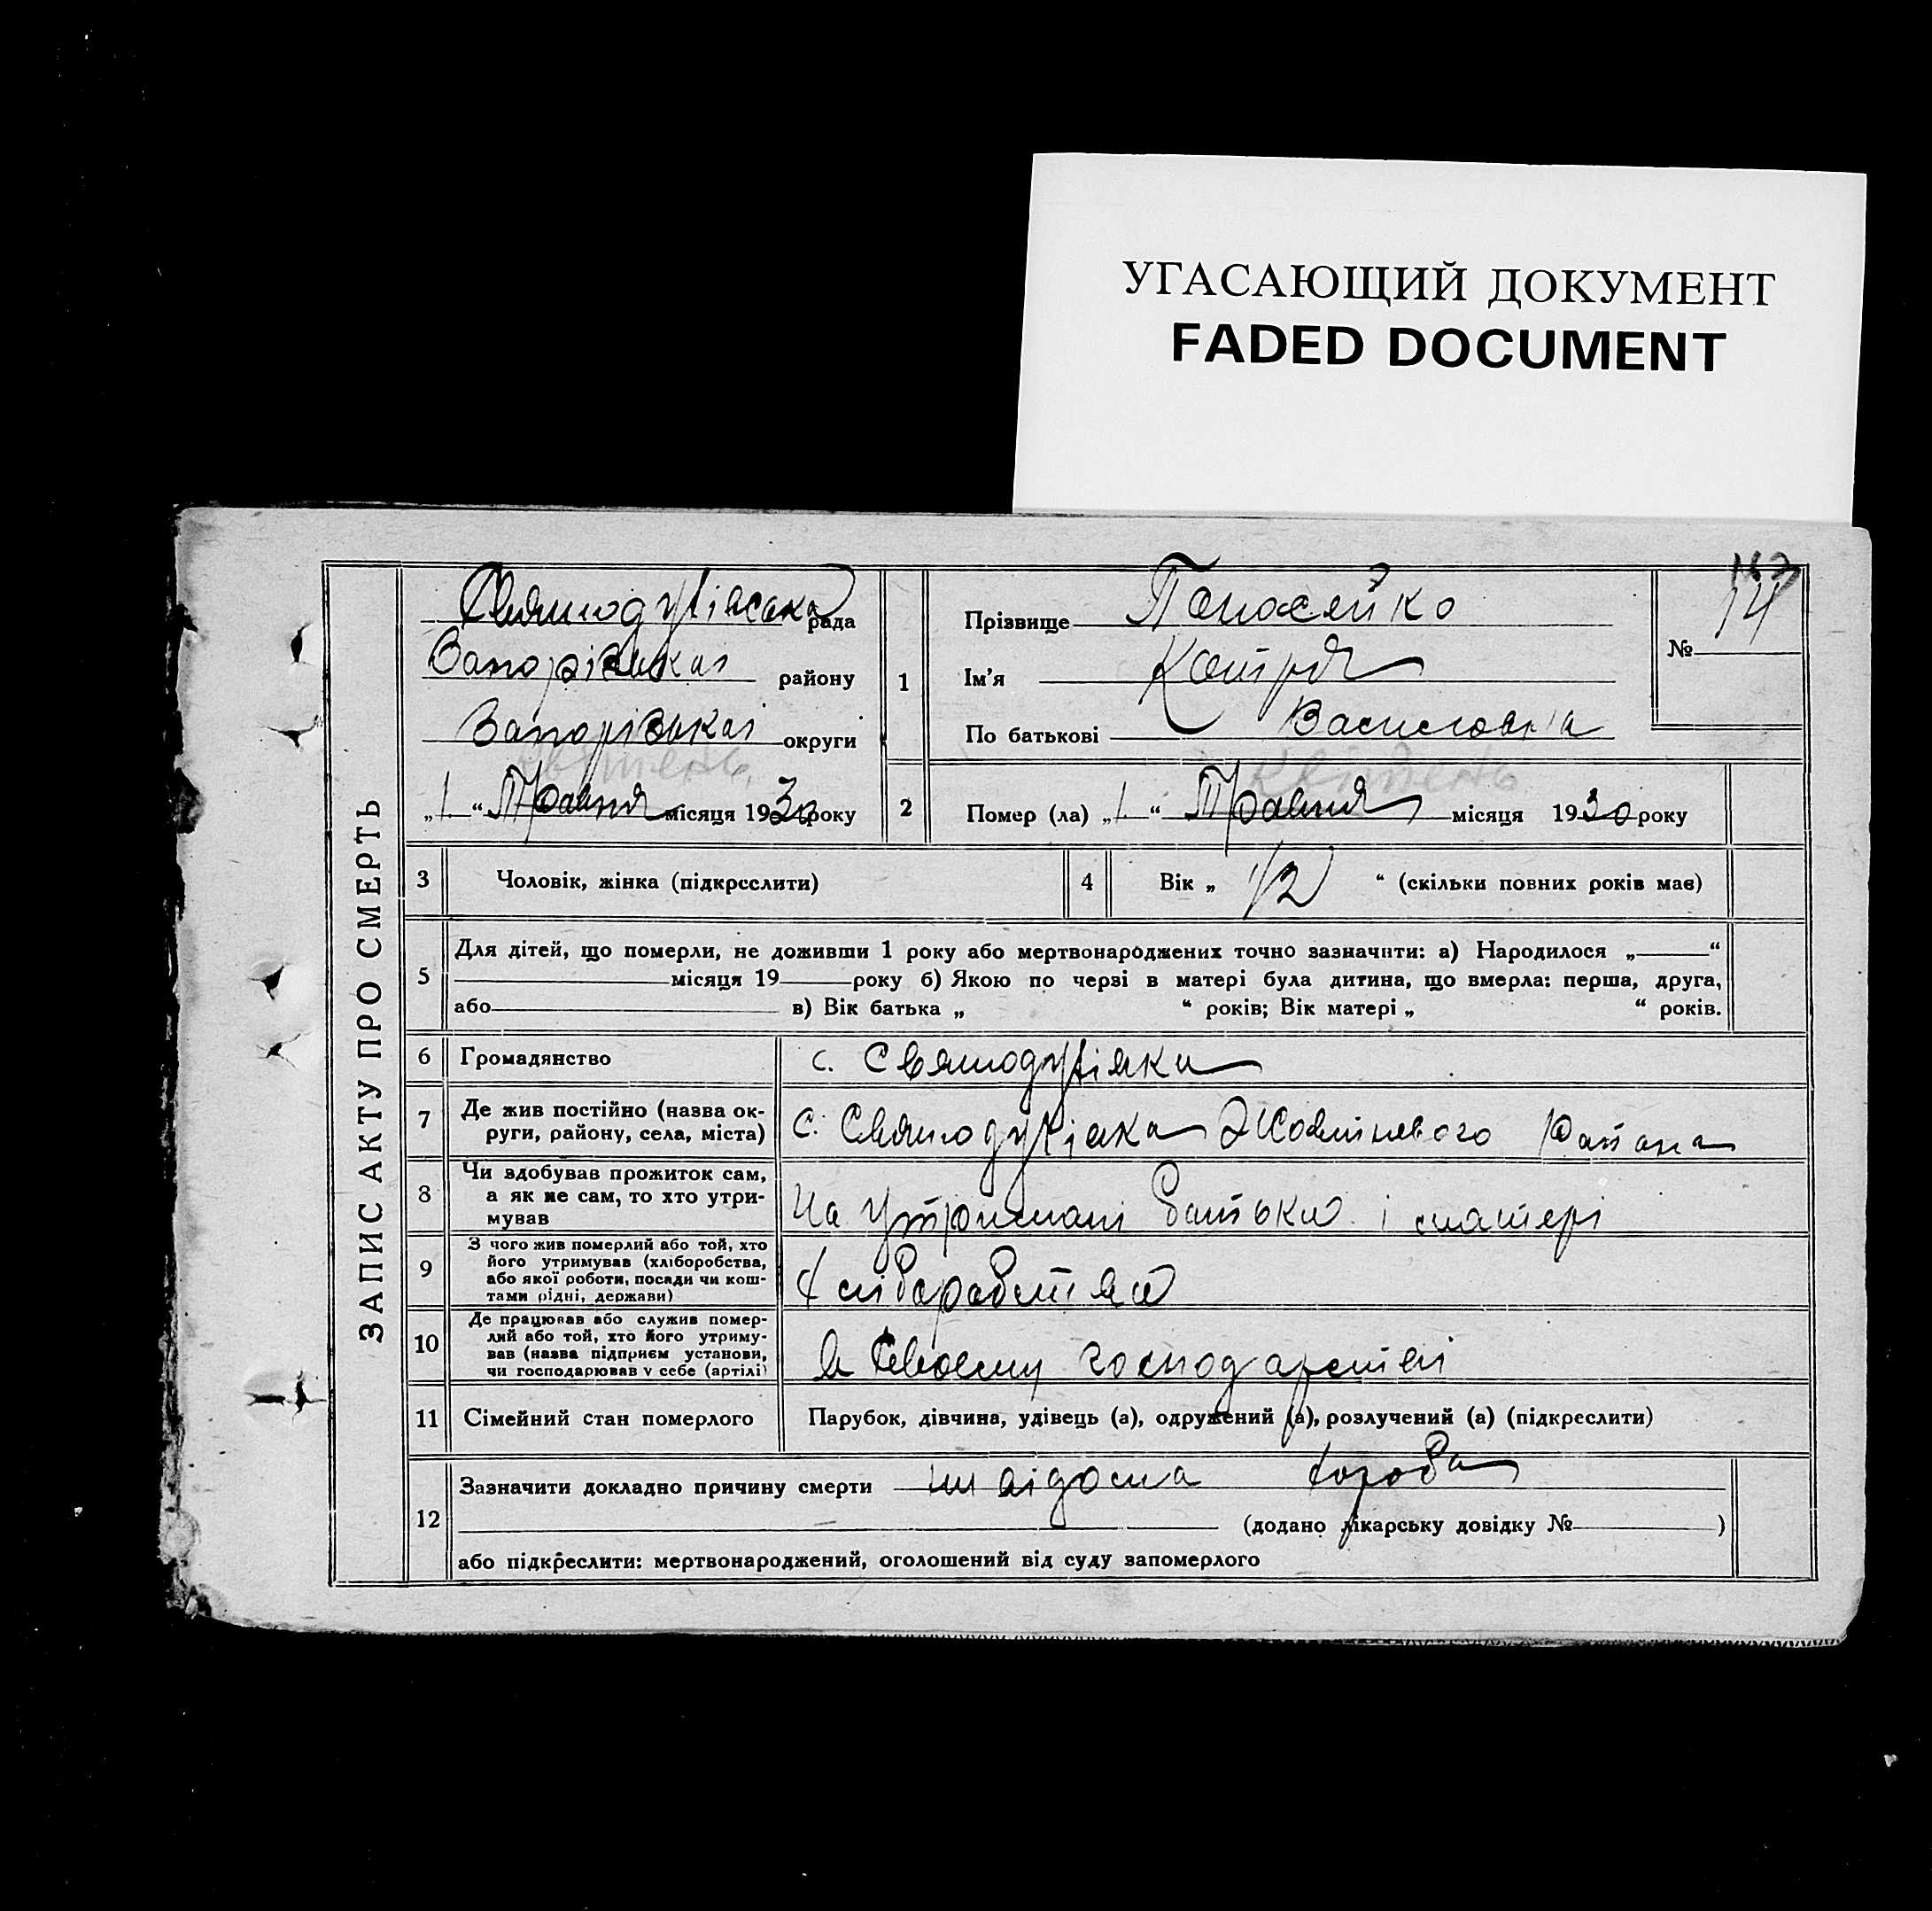 УГАСАЮЩИЙ ДОКУМЕНТ
FADED DOCUMENT
ЗАПИС АКТУ ПРО СМЕРТЬ
Святодухівська рада
Запорізької району
Запорізької округи
квітень
„1“ Травня місяця 1930 року
1
Прізвище Панасейко
Ім'я Катря
По батькові Василовна
№ 14
квітень
2
Помер (ла) „1“ Травня місяця 1930 року
3 Чоловік, жінка (підкреслити)
4 Вік „ 1/2 “ (скільки повних років має)
5 Для дітей, що померли, не доживши 1 року або мертвонароджених точно зазначити: а) Народилося „ “
місяця 19 року б) Якою по черзі в матері була дитина, що вмерла: перша, друга,
або в) Вік батька „ “ років; Вік матері „ “ років.
6 Громадянство с. Святодухівки
7 Де жив постійно (назва ок-
руги, району, села, міста) с. Святодухівка Жовтневого Району
8 Чи здобував прожиток сам,
а як не сам, то хто утри-
мував
На утримані батька і матері
9 З чого жив померлий або той, хто
його утримував (хліборобства,
або якої роботи, посади чи кош-
тами рідні, держави)
Хліборобства
10 Де працював або служив помер-
лий або той, хто його утриму-
вав (назва підприєм установи,
чи господарював у себе (артілі)
в Своєму господарстві
11 Сімейний стан померлого Парубок, дівчина, удівець (а), одружений (а), розлучений (а) (підкреслити)
12 Зазначити докладно причину смерти невідома хороба
(додано лікарську довідку № )
або підкреслити: мертвонароджений, оголошений від суду запомерлого